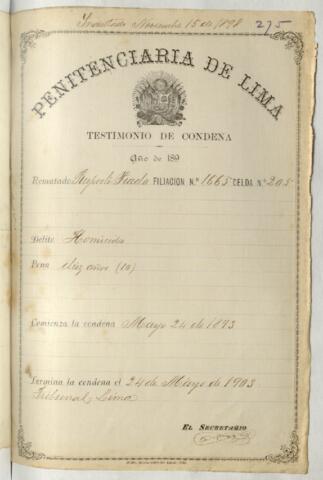 Noviembre 15 de 1898
275
PENITENCIARIA DE LIMA
TESTIMONIO DE CONDENA
Año de 189
Rematado Ruperto Prado FILIACION N.º 1665 CELDA N.º 205
Delito Homicidio
Pena diez años (10)
Comienza la condena Mayo 24 de 1893
Termina la condena el 24 de Mayo de 1903
Tribunal, Lima
EL SECRETARIO